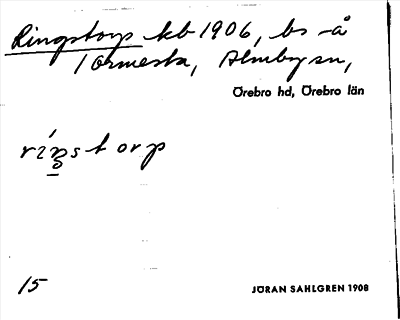 Ringstorp kb 1906, bs -å
Tormesta, Almby sn,
Örebro hd, Örebro län
ríŋstorp
15
JÖRAN SAHLGREN 1908